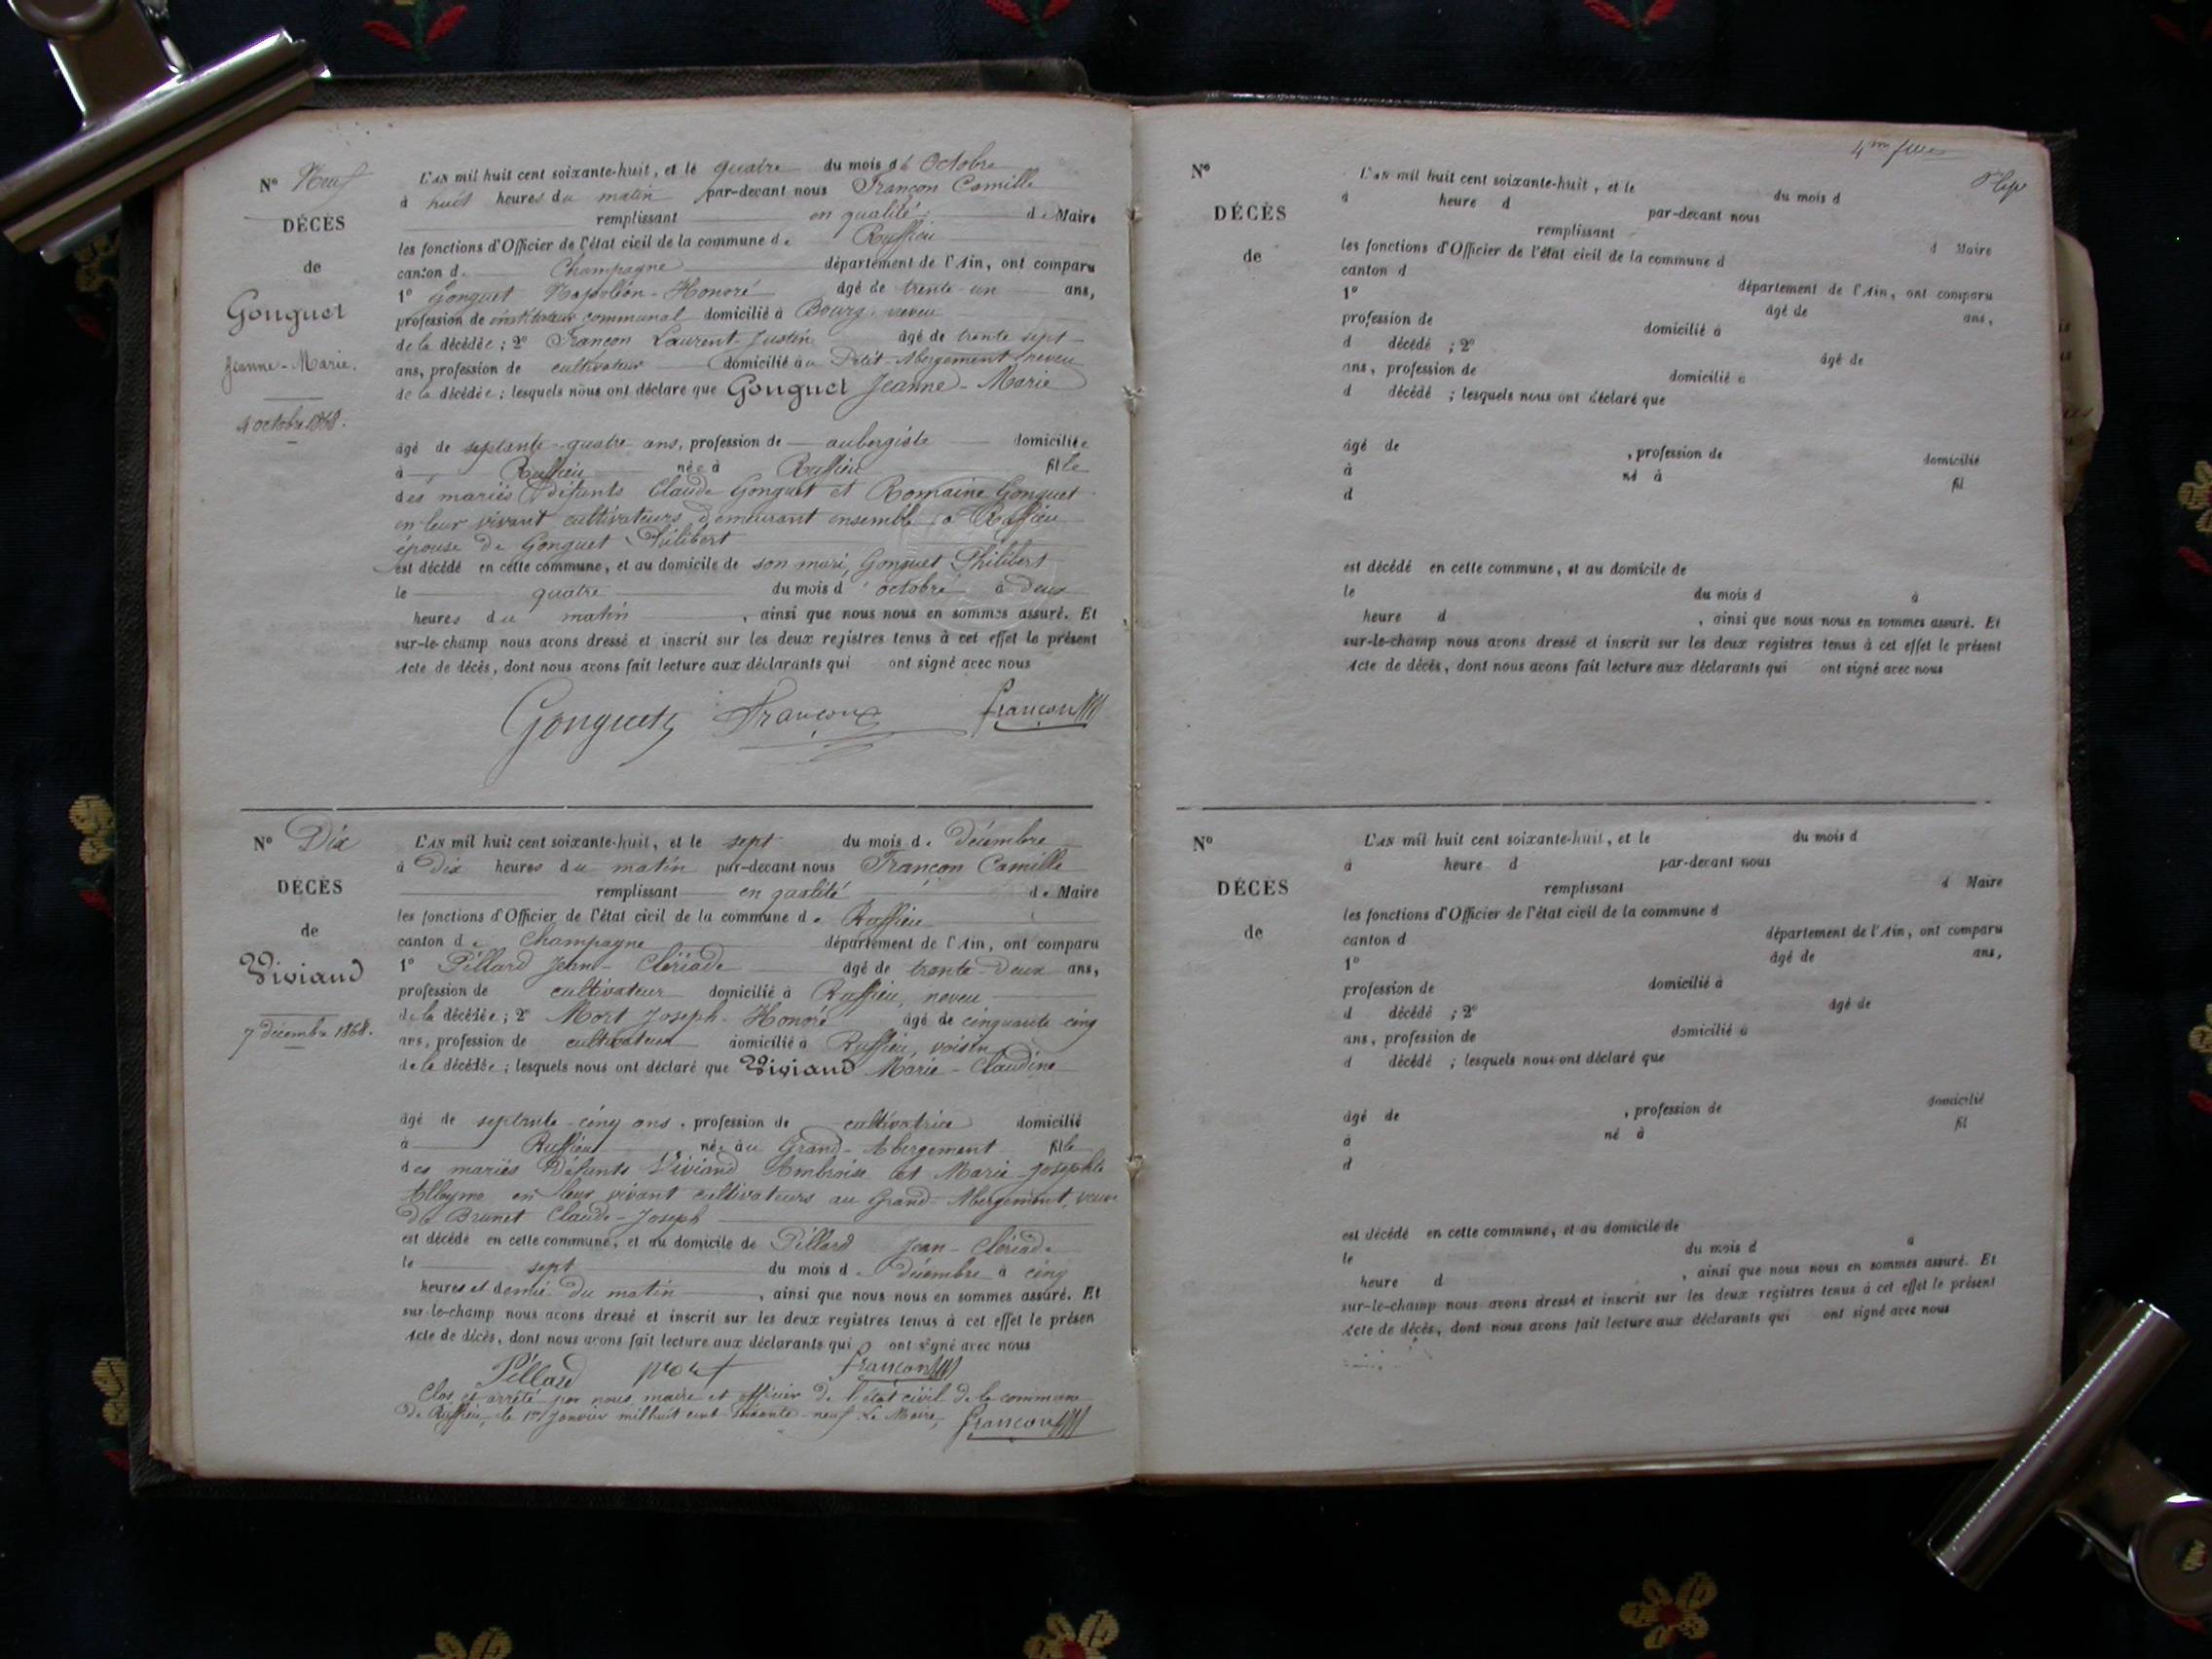 N° Neuf
DÉCÈS
de
Gonguet
Jeanne-Marie.
4 octobre 1868.
L'AN mil huit cent soixante-huit, et le quatre du mois d' Octobre
à huit heures du matin par-devant nous Françon Camille
remplissant en qualité de Maire
les fonctions d'Officier de l'état civil de la commune de Ruffieu
canton de Champagne département de l'Ain, ont comparu
1° Gonguet Napoléon-Honoré âgé de trente un ans,
profession de instituteur communal domicilié à Bourg, neveu
de la décédée ; 2° Françon Laurent-Justin âgé de trente sept
ans, profession de cultivateur domicilié au Petit-Abergement neveu
de la décédée ; lesquels nous ont déclaré que Gonguet Jeanne-Marie
âgé de septante-quatre ans, profession de aubergiste domiciliée
à Ruffieu née à Ruffieu fille
des mariés défunts Claude Gonguet et Romaine Gonguet
en leur vivant cultivateurs demeurant ensemble à Ruffieu
épouse de Gonguet Philibert
est décédé en cette commune, et au domicile de son mari, Gonguet Philibert
le quatre du mois d' octobre à deux
heures du matin , ainsi que nous nous en sommes assuré. Et
sur-le-champ nous avons dressé et inscrit sur les deux registres tenus à cet effet le présent
Acte de décès, dont nous avons fait lecture aux déclarants qui ont signé avec nous
Gonguet Françon Françon
N° Dix
DÉCÈS
de
Viviand
7 décembre 1868.
L'AN mil huit cent soixante-huit, et le sept du mois de décembre
à Dix heures du matin par-devant nous Françon Camille
remplissant en qualité de Maire
les fonctions d'Officier de l'état civil de la commune de Ruffieu
canton de Champagne département de l'Ain, ont comparu
1° Pillard Jean-Clériade âgé de trente-deux ans,
profession de cultivateur domicilié à Ruffieu, neveu
de la décédée ; 2° Mort Joseph-Honoré âgé de cinquante cinq
ans, profession de cultivateur domicilié à Ruffieu, voisin
de la décédée ; lesquels nous ont déclaré que Viviand Marie-Claudine
âgé de septante-cinq ans, profession de cultivatrice domicilié
à Ruffieu née au Grand-Abergement fille
des mariés défunts Viviand Ambroise et Marie-Josephte
en leur vivant cultivateurs au Grand-Abergement, veuve
de Brunet Claude-Joseph
est décédé en cette commune, et au domicile de Pillard Jean-Clériade
le sept du mois de décembre à cinq
heures et demie du matin , ainsi que nous nous en sommes assuré. Et
sur-le-champ nous avons dressé et inscrit sur les deux registres tenus à cet effet le présen
Acte de décès, dont nous avons fait lecture aux déclarants qui ont signé avec nous
Pillard Mort Françon
Clos et arrêté par nous maire et officier de l'état civil de la commune
de Ruffieu, le 1er Janvier mil huit cent soixante-neuf. Le Maire, Françon
4me
N°
DÉCÈS
de
L'AN mil huit cent soixante-huit, et le du mois d
à heure d par-devant nous
remplissant d Maire
les fonctions d'Officier de l'état civil de la commune d
canton d département de l'Ain, ont comparu
1° âgé de ans,
profession de domicilié à
d décédé ; 2° âgé de
ans, profession de domicilié à
d décédé ; lesquels nous ont déclaré que
âgé de , profession de domicilié
à né à fil
d
est décédé en cette commune, et au domicile de
le du mois d à
heure d , ainsi que nous nous en sommes assuré. Et
sur-le-champ nous avons dressé et inscrit sur les deux registres tenus à cet effet le présent
Acte de décès, dont nous avons fait lecture aux déclarants qui ont signé avec nous
N°
DÉCÈS
de
L'AN mil huit cent soixante-huit, et le du mois d
à heure d par-devant nous
remplissant d Maire
les fonctions d'Officier de l'état civil de la commune d
canton d département de l'Ain, ont comparu
1° âgé de ans,
profession de domicilié à
d décédé ; 2° âgé de
ans, profession de domicilié à
d décédé ; lesquels nous ont déclaré que
âgé de , profession de domicilié
à né à fil
d
est décédé en cette commune, et au domicile de
le du mois d à
heure d , ainsi que nous nous en sommes assuré. Et
sur-le-champ nous avons dressé et inscrit sur les deux registres tenus à cet effet le présent
Acte de décès, dont nous avons fait lecture aux déclarants qui ont signé avec nous